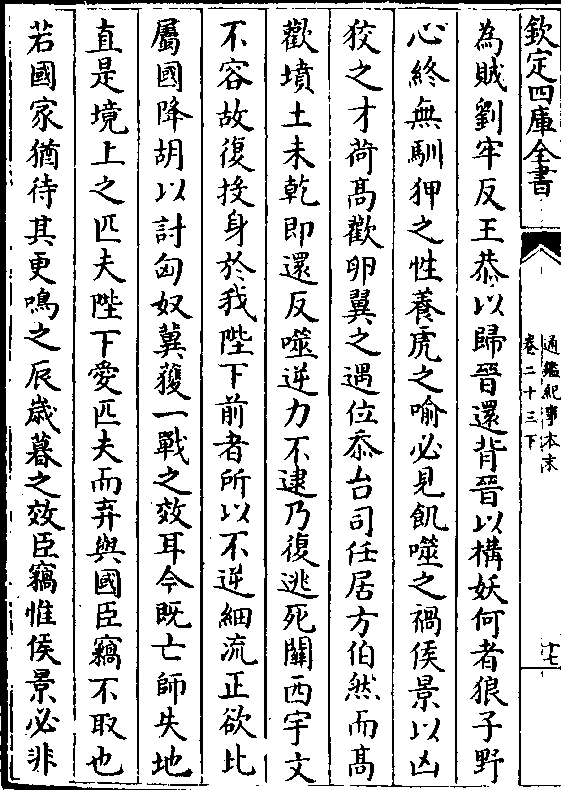 欽定四庫全書
通鑑紀事本末
卷二十三下
十七
為賊劉牢反王恭以歸晉還背晉以構妖何者狼子野
心終無馴狎之性養虎之喻必見飢噬之禍侯景以凶
狡之才荷高歡卵翼之遇位忝台司任居方伯然而高
歡墳土未乾即還反噬逆力不逮乃復逃死關西宇文
不容故復投身於我陛下前者所以不逆細流正欲比
屬國降胡以討匈奴冀獲一戰之效耳今既亡師失地
直是境上之匹夫陛下愛匹夫而弃與國臣竊不取也
若國家猶待其更鳴之辰歲暮之效臣竊惟侯景必非